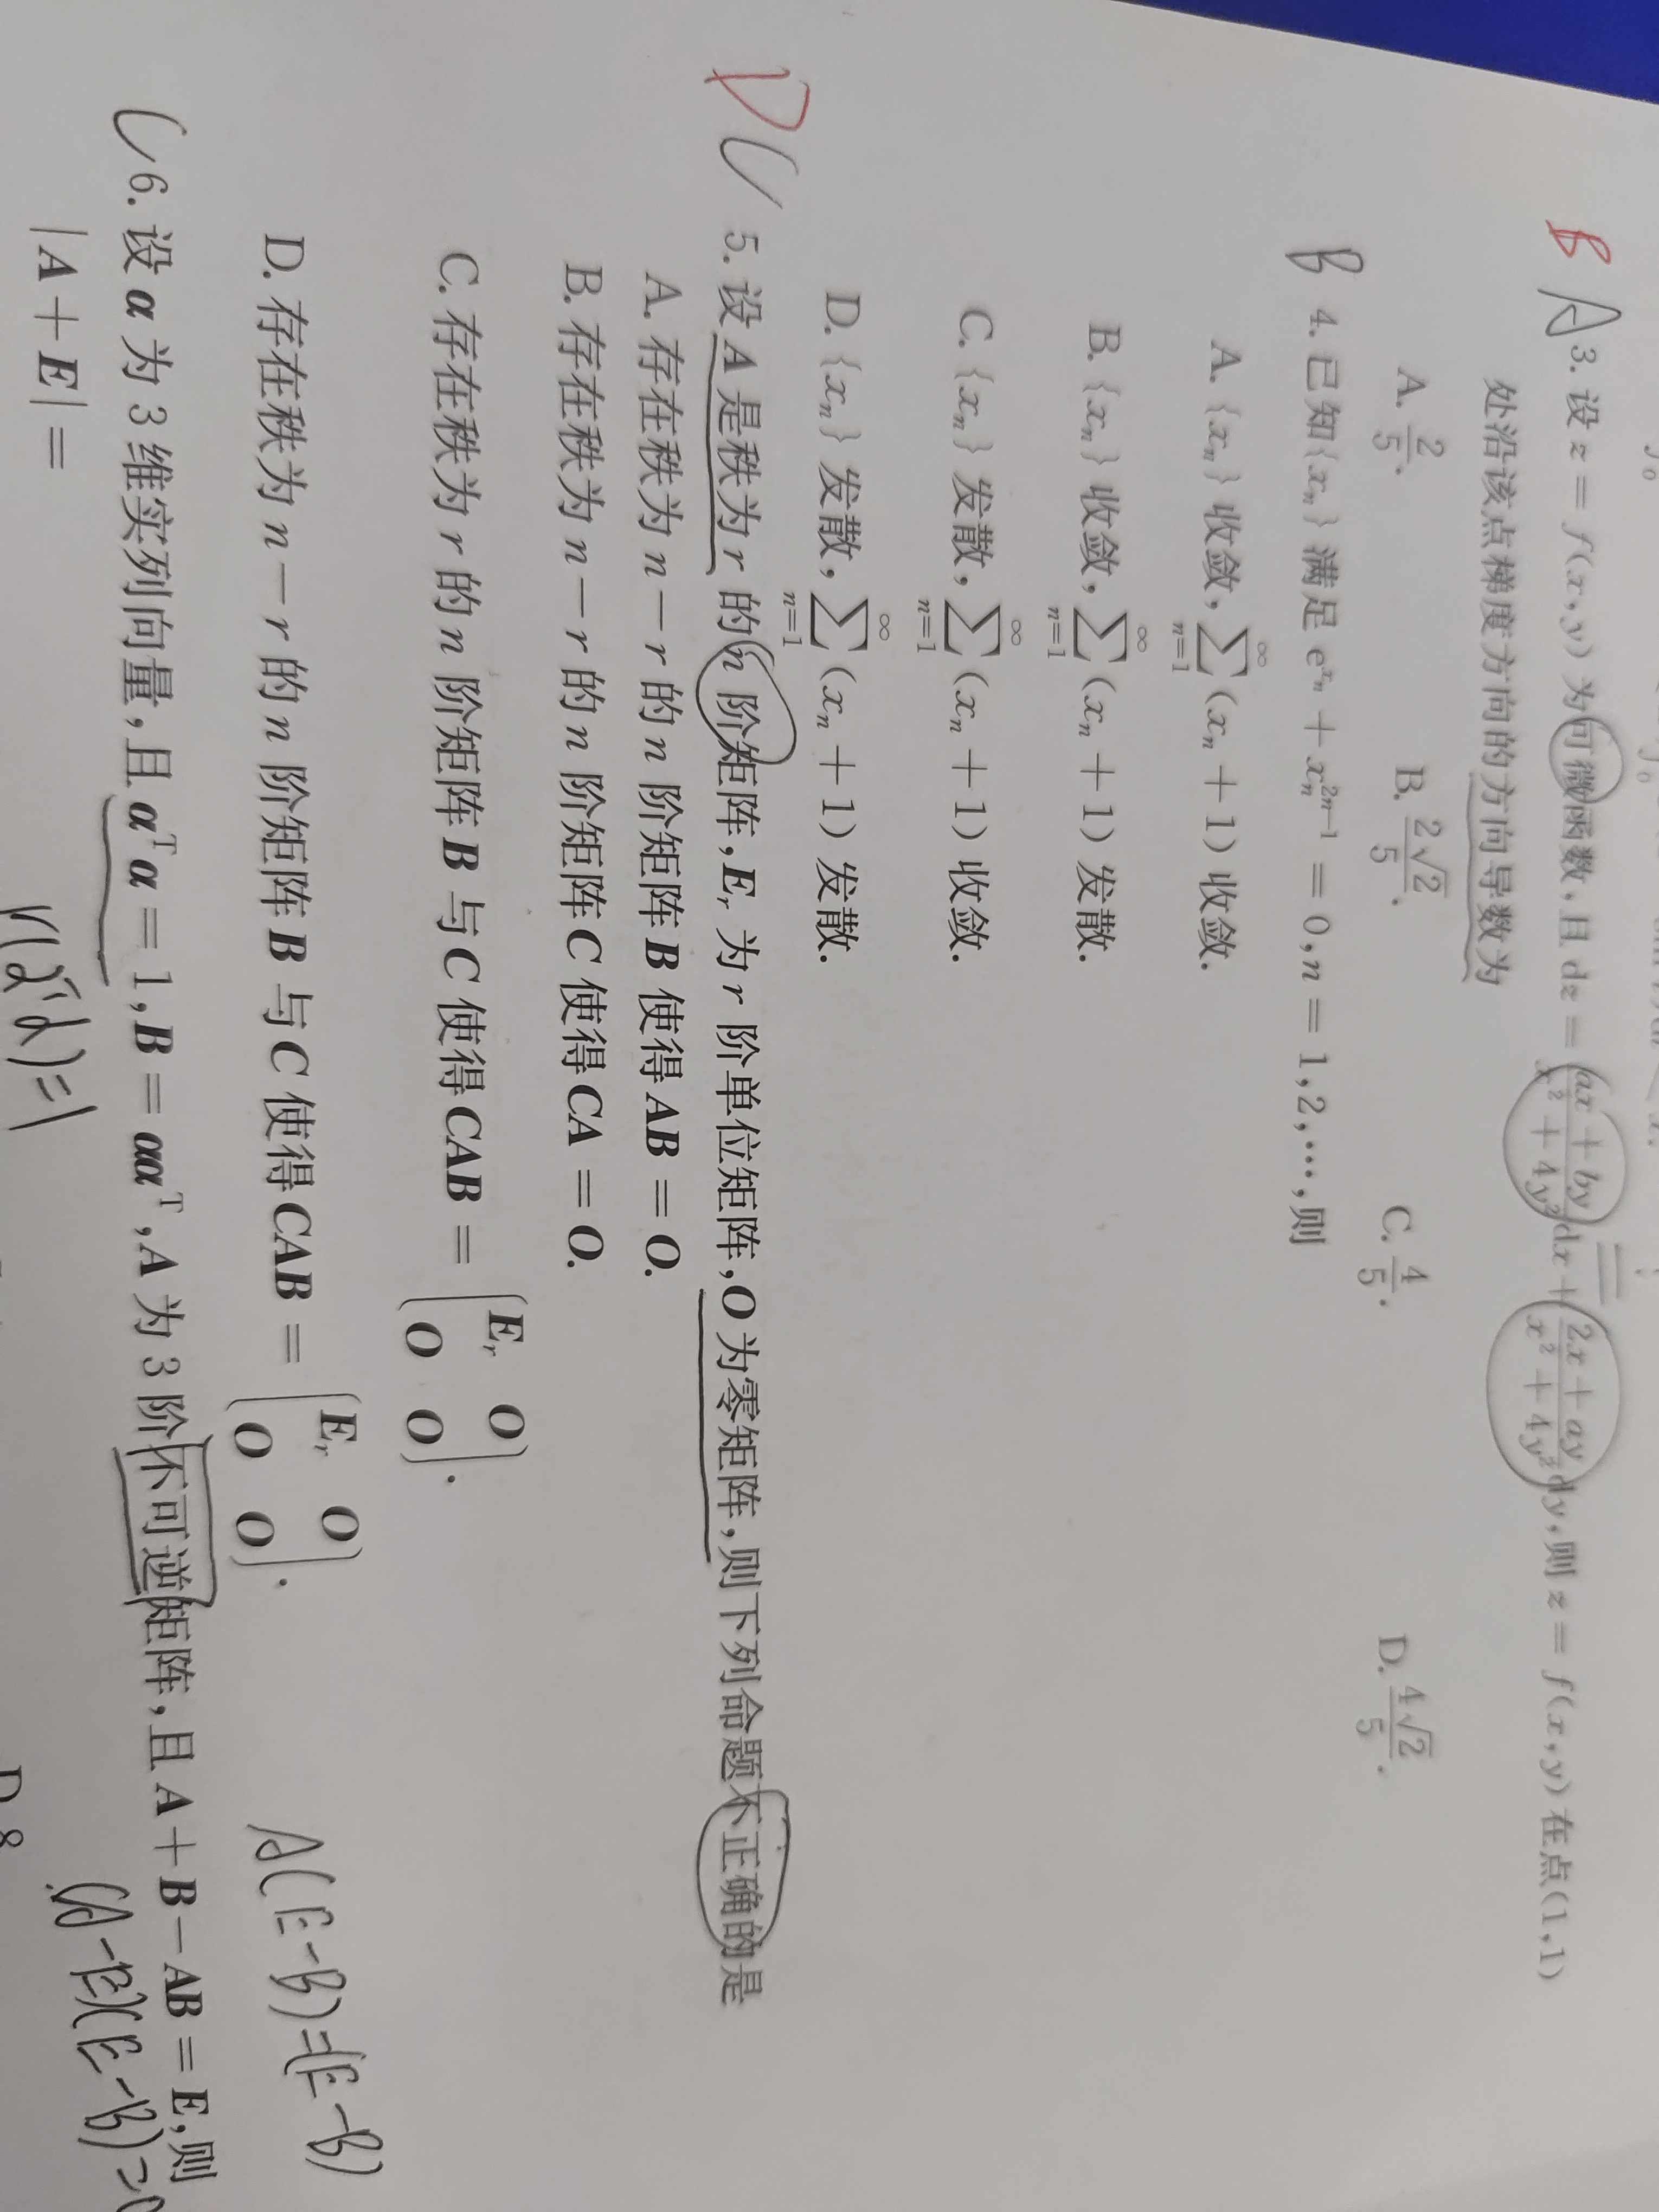 B A 3. 设 z = f(x,y) 为可微函数,且 dz = \frac{ax+by}{x^2+4y^2}dx + \frac{2x+ay}{x^2+4y^2}dy,则 z = f(x,y) 在点(1,1)
处沿该点梯度方向的方向导数为
A. \frac{2}{5}. B. \frac{2\sqrt{2}}{5}. C. \frac{4}{5}. D. \frac{4\sqrt{2}}{5}.
B 4. 已知{x_n}满足 e^{x_n} + x_n^{2n-1} = 0,n = 1,2,…,则
A. {x_n}收敛, \sum_{n=1}^{∞}(x_n+1)收敛.
B. {x_n}收敛, \sum_{n=1}^{∞}(x_n+1)发散.
C. {x_n}发散, \sum_{n=1}^{∞}(x_n+1)收敛.
D. {x_n}发散, \sum_{n=1}^{∞}(x_n+1)发散.
D C 5. 设 A 是秩为 r 的 n 阶矩阵,E_r 为 r 阶单位矩阵,O 为零矩阵,则下列命题不正确的是
A. 存在秩为 n-r 的 n 阶矩阵 B 使得 AB = O.
B. 存在秩为 n-r 的 n 阶矩阵 C 使得 CA = O.
C. 存在秩为 r 的 n 阶矩阵 B 与 C 使得 CAB = \begin{pmatrix} E_r & O \\ O & O \end{pmatrix}.
D. 存在秩为 n-r 的 n 阶矩阵 B 与 C 使得 CAB = \begin{pmatrix} E_r & O \\ O & O \end{pmatrix}.
A(E-B)=(E-B)
C 6. 设 α 为 3 维实列向量,且 α^Tα = 1,B = αα^T,A 为 3 阶不可逆矩阵,且 A + B - AB = E,则
|A + E| =
(A-E)(E-B)=0
r(α^Tα)=1
D. 8